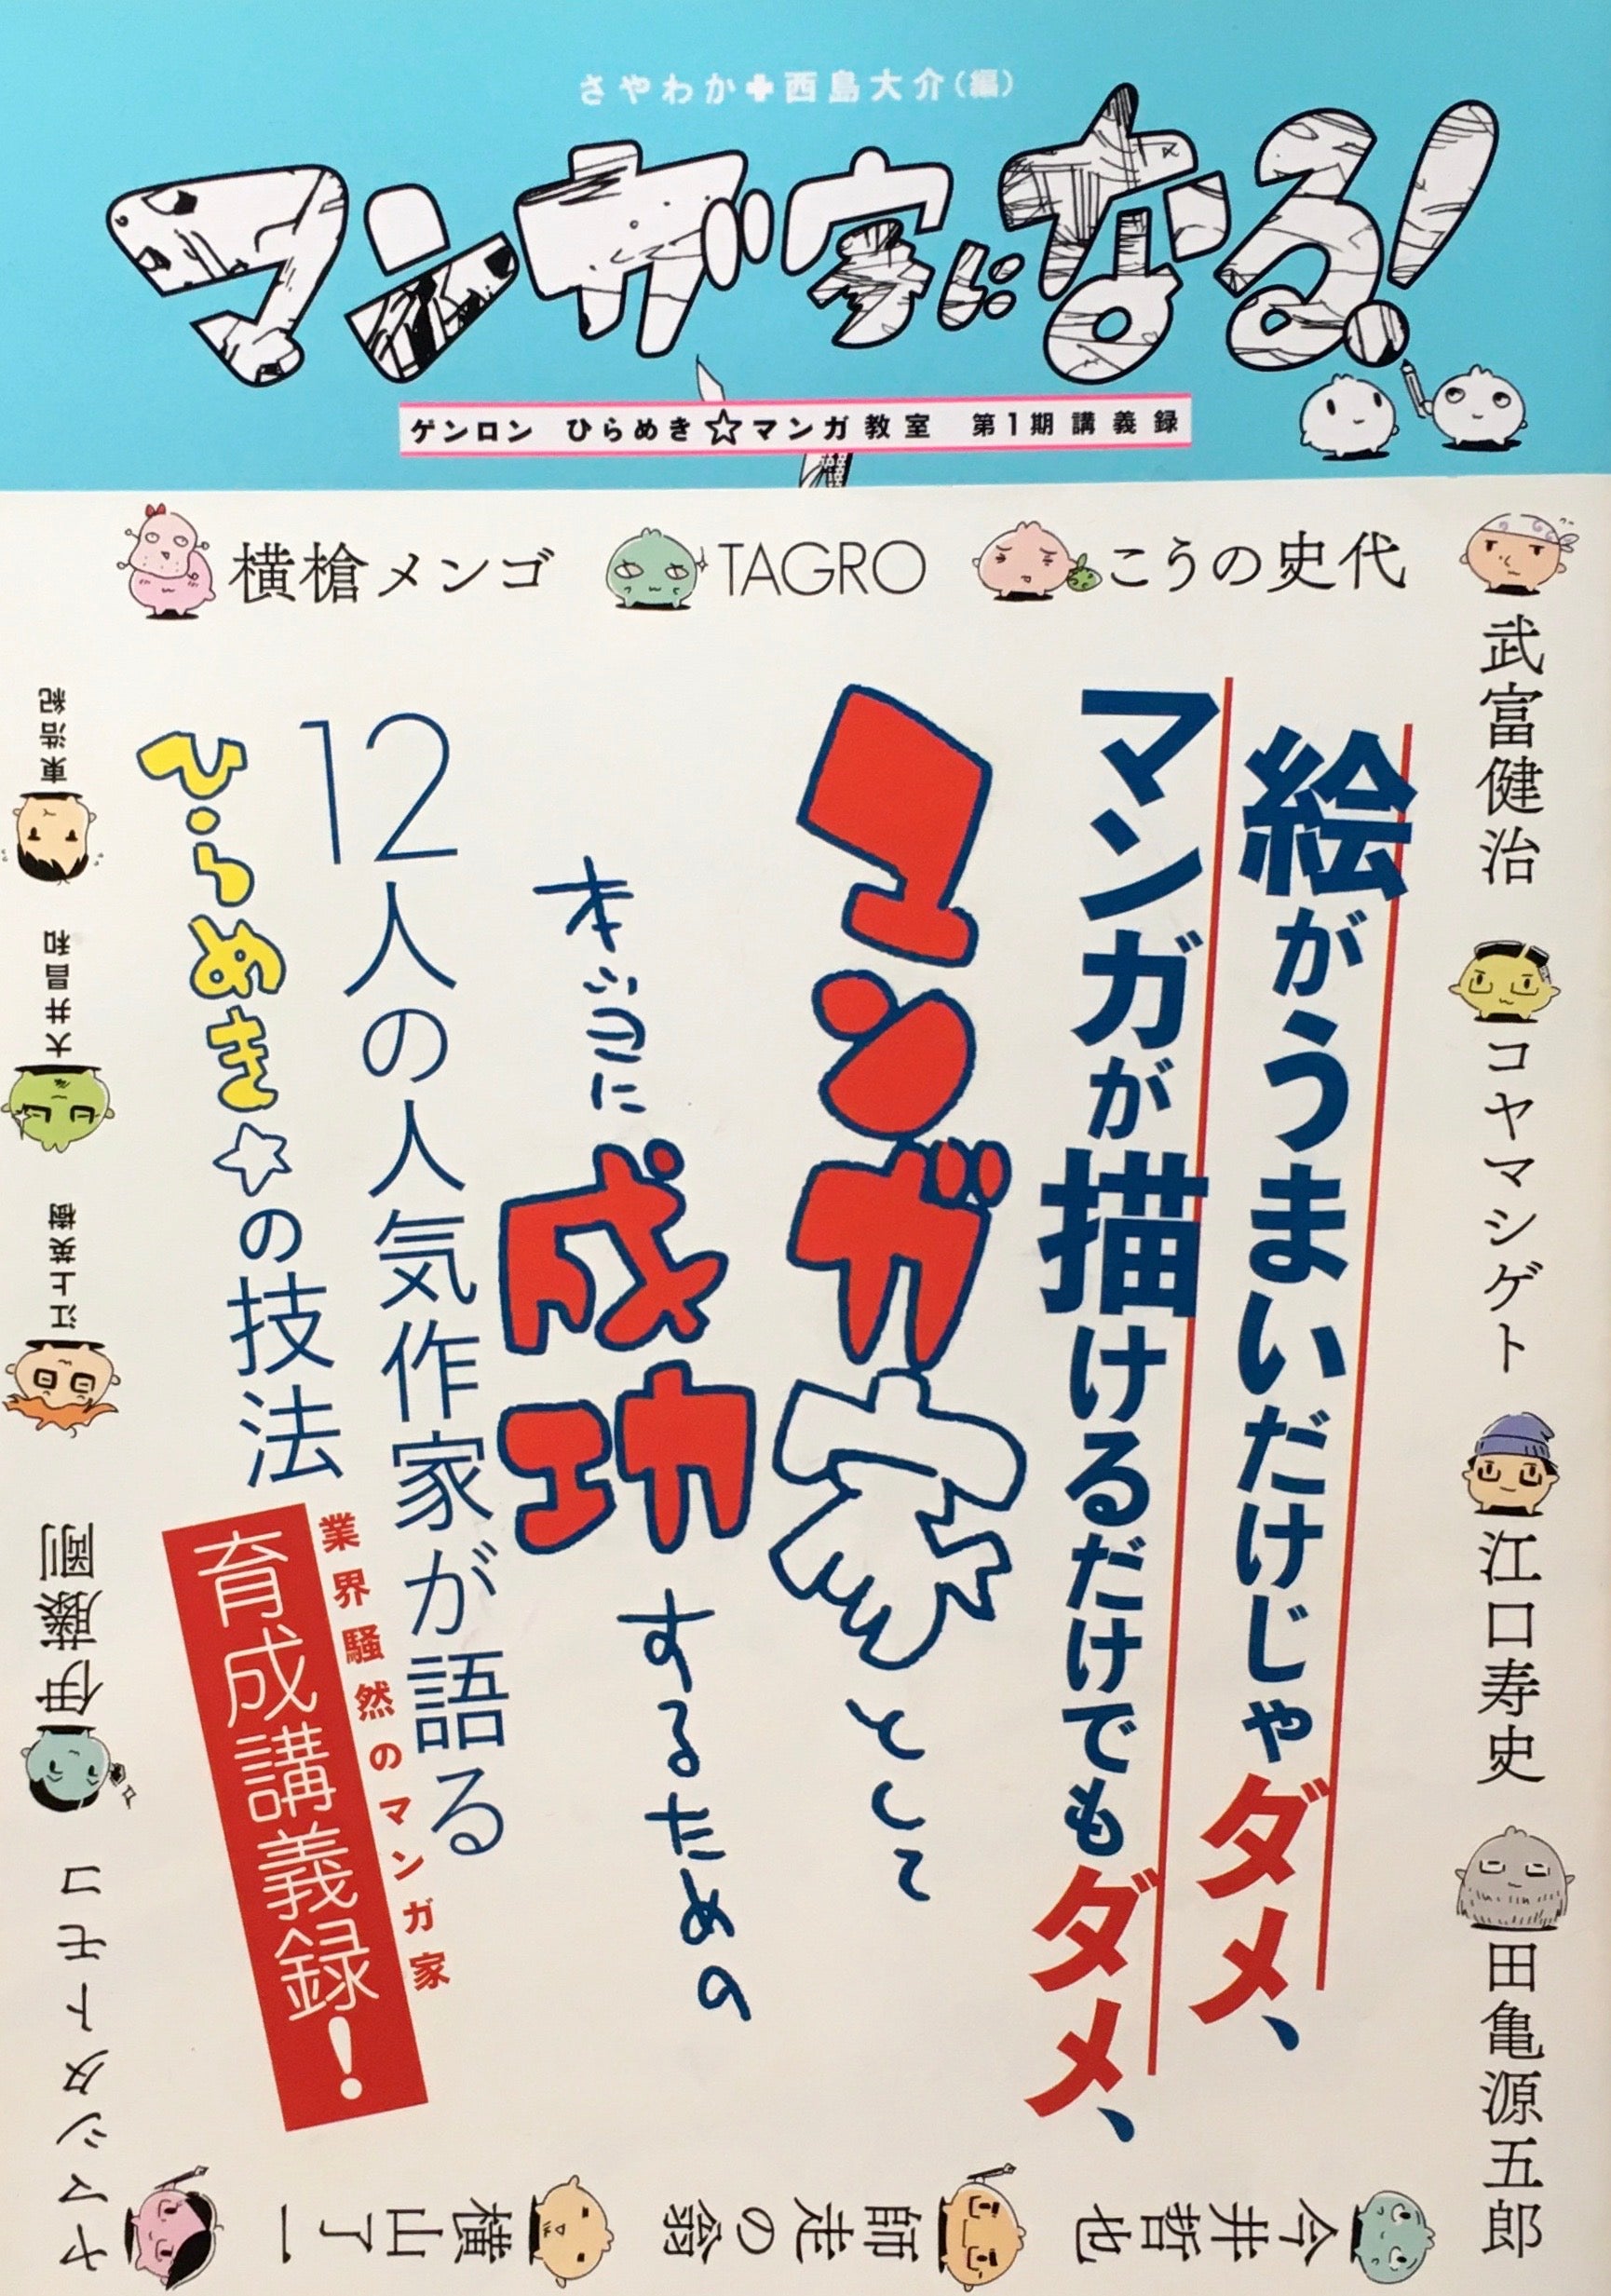 さやわか✚西島大介（編）
マンガ家になる！
ゲンロン ひらめき☆マンガ教室 第1期講義録
横槍メンゴ
TAGRO
こうの史代
武富健治
コヤマシゲト
江口寿史
田亀源五郎
今井哲也
師走の翁
横山了一
ヤマシタトモコ
伊藤剛
江上英樹
大井昌和
東浩紀
絵がうまいだけじゃダメ、
マンガが描けるだけでもダメ、
マンガ家として
本当に成功するための
12人の人気作家が語る
ひらめき☆の技法
業界騒然のマンガ家
育成講義録！